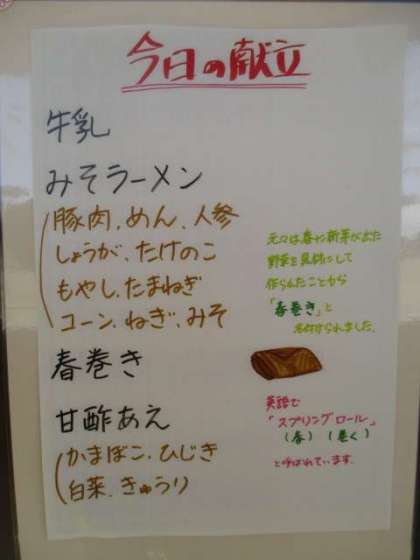 今日の献立
牛乳
みそラーメン
豚肉、めん、人参
しょうが、たけのこ
もやし、たまねぎ
コーン、ねぎ、みそ
春巻き
甘酢あえ
かまぼこ、ひじき
白菜、きゅうり
元々は春に新芽が出た
野菜を具材にして
作られたことから
「春巻き」と
名付けられました。
英語で
「スプリングロール」
(春) (巻く)
と呼ばれています。